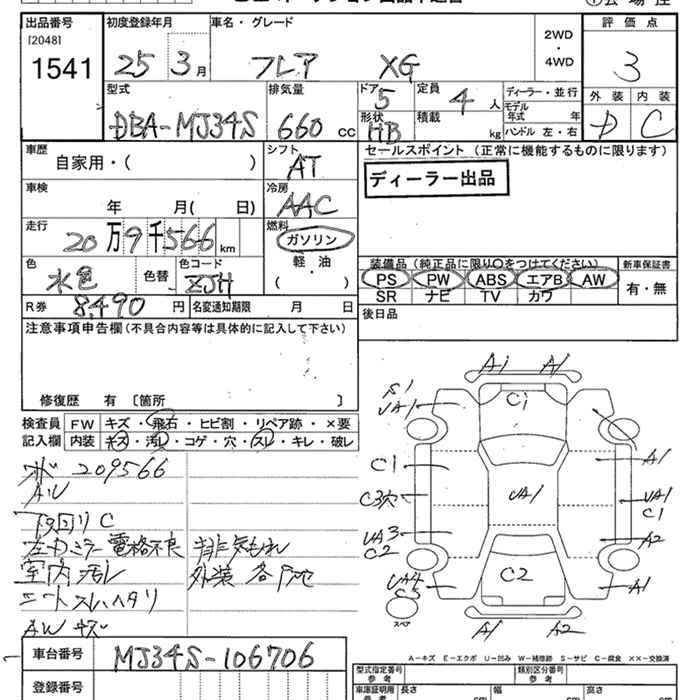 出品番号
[2048]
1541
初度登録年月
25 3月
車名・グレード
フレア XG
2WD
・
4WD
評価点
3
外装 内装
D C
型式
DBA-MJ34S
排気量
660 cc
ドア
5
形状
HB
定員
4人
積載
kg
ディーラー・並行
モデル
年式 年
ハンドル 左・右
車歴
自家用・( )
シフト
AT
車検
年 月( 日)
冷房
AAC
走行
20万9千566km
燃料
ガソリン
軽・油
( )
色
水色
色替
色コード
ZJH
R券
8,490円
名変通知期限 月 日
セールスポイント (正常に機能するものに限ります)
ディーラー出品
装備品(純正品に限り○をつけてください)
PS PW ABS エアB AW
SR ナビ TV カワ
新車保証書
有・無
後日品
注意事項申告欄(不具合内容等は具体的に記入して下さい)
修復歴 有 〔箇所 〕
検査員
記入欄
FW キズ・飛石・ヒビ割・リペア跡・×要
内装 キズ・汚レ・コゲ・穴・スレ・キレ・破レ
209566
下回りC
左ドアミラー電格不良
排気もれ
室内汚レ
外装各凹他
シートスレ、ヘタリ
AWキズ
A1 A1
S1
UA1
C1
C1
A1
C3穴
UA1
UA1
C1
UA3
C2
A2
C2
UA4
C5
A1
スペア
A1 A2
A-キズ E-エクボ U-凹み W-補修跡 S-サビ C-腐食 ××-交換済
車台番号
MJ34S-106706
登録番号
型式指定番号
参考
類別区分番号
参考
車庫証明用
参考
長さ
cm
幅
cm
高さ
cm